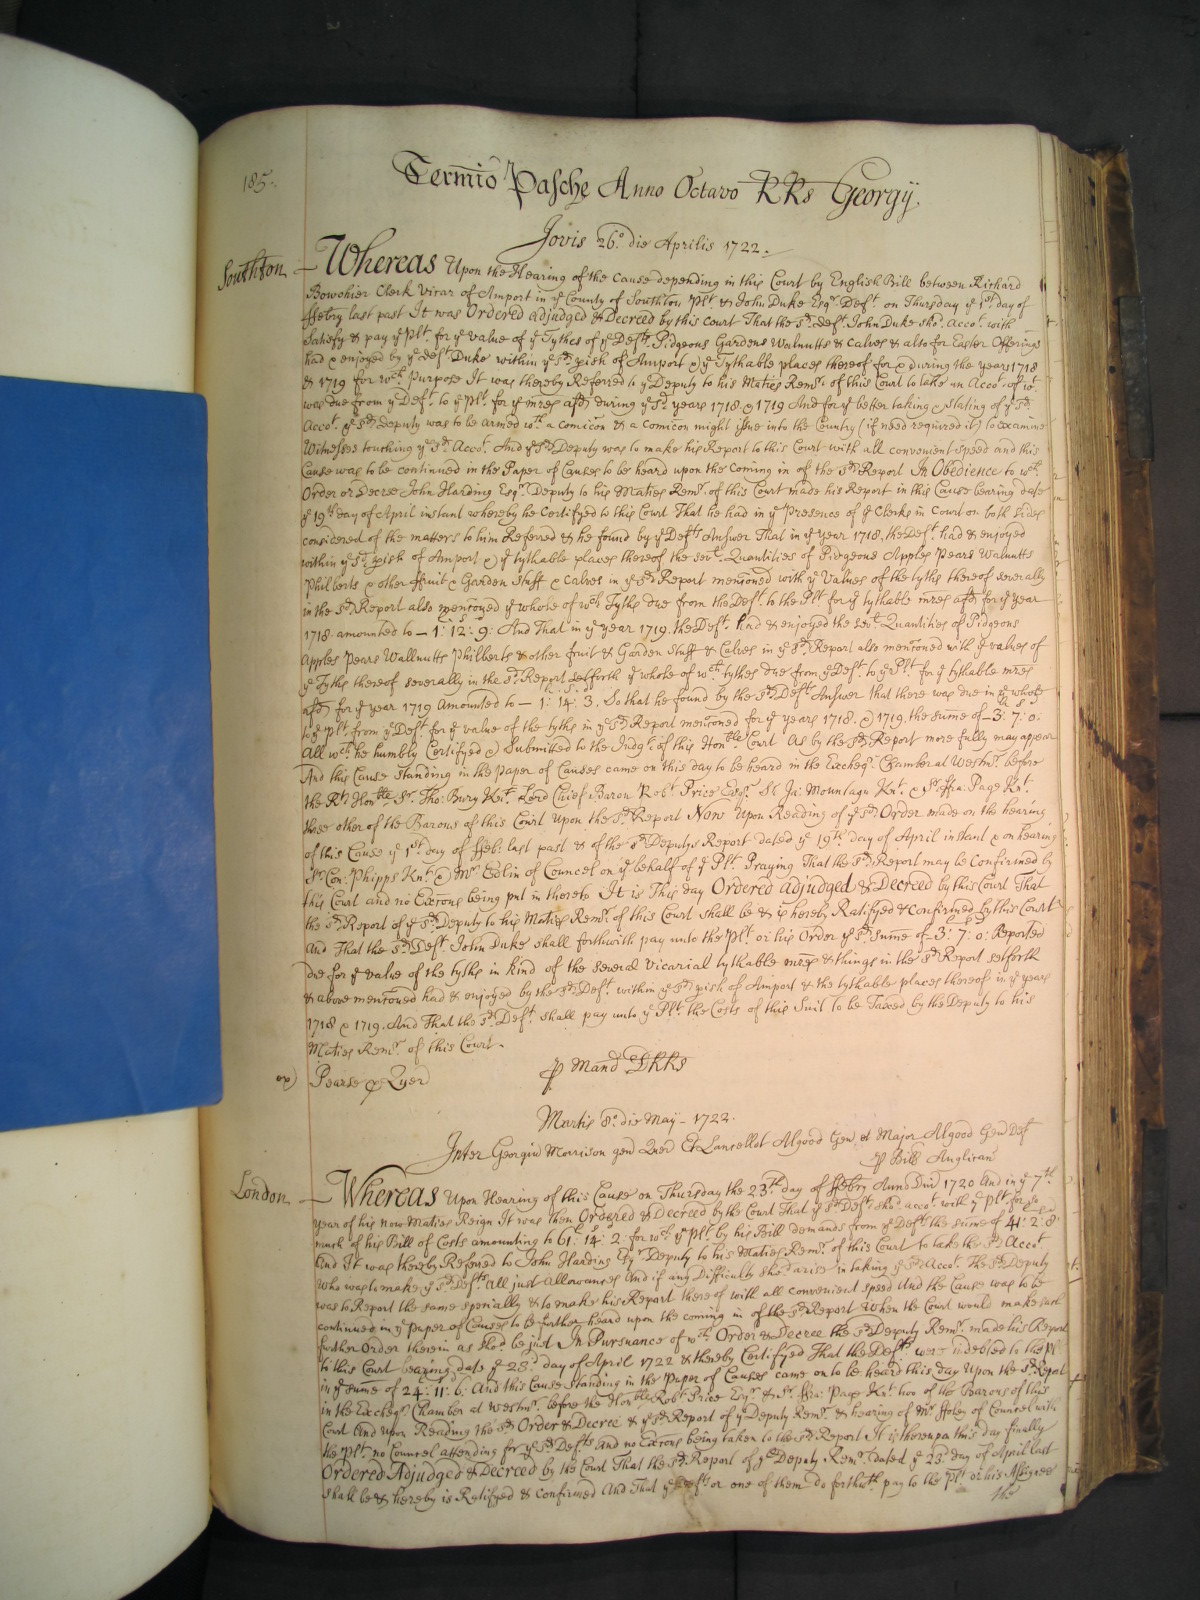 185.
Termio Pasche Anno Octavo RRs Georgÿ.
Jovis 26.o die Aprilis 1722.
Southton
Whereas Upon the Hearing of the Cause depending in this Court by English Bill between Richard
Clerk Vicar of Amport in ye County of Southton Plt & John Duke Esqr. Deft. on Thursday ye 1st day of
ffebry last past It was Ordered adjudged & Decreed by this Court That the sd. Deft John Duke sho. Acco.t with
Satisfy & pay ye Plt. for ye value of ye Tythes of ye Defts. Pidgeons Gardens Walnutts & Calves & also for Easter Offerings
had & enjoyed by ye Deft Duke within ye sd. pish of Amport & ye Tythable places thereof for & during the years 1718
& 1719 for wch. Purpose It was thereby Referred to ye Deputy to his Maties Remr. of this Court to take an Accot. of wt
was due from ye Deft. to ye Plt. for ye mres afd. during ye sd. years 1718 & 1719 And for ye better taking & stating of ye sd.
Accot. ye sd. Deputy was to be armed wth. a comicon & a comicon might issue into the Country (if need required it) to examine
Witnesses touching ye sd. Accot. And ye sd. Deputy was to make his Report to this Court with all convenient speed and this
Cause was to be continued in the Paper of Causes to be heard upon the coming in of the sd. Report In Obedience to wch.
Order or Decree John Harding Esqr. Deputy to his Maties Remr. of this Court made his Report in this Cause bearing date
ye 19th day of April instant whereby he Certifyed to this Court That he had in ye presence of ye Clerks in Court on both sides
considered of the matters to him Referred & he found by ye Defts Answer That in ye year 1718. the Deft. had & enjoyed
within ye sd. pish of Amport & ye tythable places thereof the sevl. Quantities of Pidgeons Apples Pears Walnutts
Philberts & other ffruit & Garden Stuff & Calves in ye sd. Report menconed with ye Values of the tyths thereof severally
in the sd. Report also menconed ye whole of wch Tyths due from the Deft. to the Plt. for ye tythable mres afd. for ye year
1718 amounted to – 1: 12: 9: And That in ye year 1719. the Deft. had & enjoyed the sevl. Quantities of Pidgeons
Apples Pears Wallnutts Philberts & other fruit & Garden Stuff & Calves in ye sd. Report also menconed with ye values of
ye Tyths thereof severally in the sd. Report setforth ye whole of wch tythes due from ye Deft. to ye Plt. for ye tythable mres
afd. for ye year 1719 Amounted to – 1: 14: 3. So that he found by the sd. Deft Answer that there was due in ye whole
to ye Plt. from ye Deft. for ye value of the tyths in ye sd. Report menconed for ye years 1718. & 1719. the sume of – 3: 7: 0:
All wch. he humbly Certifyed & Submitted to the Judgt. of this Honble Court As by the sd. Report more fully may appear
And this Cause standing in the paper of Causes came on this day to be heard in the Excheqr. Chamber at Westmr. before
the Rt Honble Sr. Tho: Bury Knt. Lord Chief Baron Robt. Price Esqr. Sr. Ja: Mountagu Knt. & Sr. ffra: Page Knt.
three other of the Barons of this Court upon the sd. Report Now Upon Reading of ye sd. Order made on the hearing
of this Cause ye 1st day of ffeb: last past & of the sd Deputys Report dated ye 19th. day of April instant & on hearing
Sr. Con: Phipps Knt & Mr Edlin of Councel on ye behalf of ye Plt. Praying That the sd. Report may be Confirmed by
this Court and no Excons being put in thereto It is This day Ordered adjudged & Decreed by this Court That
the sd. Report of ye sd. Deputy to his Maties Remr. of this Court shall be & is hereby Ratifyed & Confirmed by this Court
And That the sd. Deft. John Duke shall forthwith pay unto the Plt. or his Order ye sd. sume of – 3: 7: 0: Reported
due for ye value of the tyths in kind of the several Vicarial tythable mres & things in the sd. Report setforth
& above menconed had & enjoyed by the sd. Deft. within ye sd. pish of Amport & the tythable places thereof in ye years
1718 & 1719. And That the sd. Deft. shall pay unto ye Plt. the Costs of this Suit to be Taxed by the Deputy to his
Maties Remr. of this Court.
ex) Pearse & Eyer
p Mand DRRs
Martis 8.o die May – 1722.
Inter Georgiu Morrison gen Quer Et Lancellot Algood Gen et Major Algood Gen Def
p Bill Anglican
London
Whereas Upon Hearing of this Cause on Thursday the 23th day of ffebry Anno Dni 1720 And in ye 7th
year of his Now Maties Reign It was then Ordered & Decreed by the Court That ye sd Defts sho. accot. with ye Plt for so
much of his Bill of Costs amounting to 61: 14: 2: for wch. ye Plt. by his Bill demands from ye Deft the sume of 41: 2: 8:
And It was thereby Referred to John Harding Esqr. Deputy to his Maties Remr. of this Court to take the sd Accot
who was to make ye sd. Defts. all just Allowances And if any Difficulty sho. arise in taking ye sd. Accot. The sd. Deputy
was to Report the same specially & to make his Report thereof with all convenient speed And the Cause was to be
continued in ye paper of Causes to be further heard upon the coming in of the sd Report When the Court would make such
further Order therein as sho. be just In Pursuance of wch. Order & Decree the sd Deputy Remr. made his Report
to this Court bearing date ye 23d. day of April 1722 & thereby Certifyed That the Defts were indebted to the Plt
in ye sume of 24: 11: 6: And this Cause standing in the Paper of Causes came on to be heard this day Upon the sd. Report
in the Excheqr. Chamber at Westmr. before the Honble Robt Price Esqr. & Sr. ffra: Page Knt. two of the Barons of this
Court And upon Reading the sd. Order & Decree & ye sd Report of ye Deputy Remr. & hearing of Mr of Councel with
the Plt. no Councel attending for ye sd. Defts And no Excons being taken to the sd. Report It is thereupon this day finally
Ordered Adjudged & Decreed by the Court That the sd. Report of ye Deputy Remr. dated ye 23d. day of April last
shall be & hereby is Ratifyed & confirmed And That ye Defts or one of them do forthwth pay to the Plt or his Assignes
the